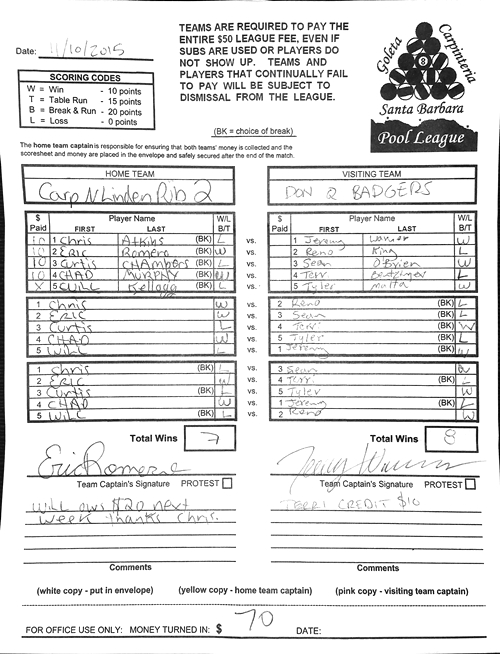 Date: 11/10/2015
TEAMS ARE REQUIRED TO PAY THE
ENTIRE $50 LEAGUE FEE, EVEN IF
SUBS ARE USED OR PLAYERS DO
NOT SHOW UP. TEAMS AND
PLAYERS THAT CONTINUALLY FAIL
TO PAY WILL BE SUBJECT TO
DISMISSAL FROM THE LEAGUE.
(BK = choice of break)
SCORING CODES
W = Win - 10 points
T = Table Run - 15 points
B = Break & Run - 20 points
L = Loss - 0 points
Goleta
Carpinteria
8
Santa Barbara
Pool League
The home team captain is responsible for ensuring that both teams' money is collected and the
scoresheet and money are placed in the envelope and safely secured after the end of the match.
HOME TEAM VISITING TEAM
Carp N Linden Rib 2 DON Q BADGERS
$ Paid Player Name FIRST LAST W/L B/T $ Paid Player Name FIRST LAST W/L B/T
10 1 Chris Atkins (BK) L vs. 1 Jeremy W
10 2 ERIC Romero (BK) W vs. 2 Reno King L
10 3 Curtis CHAmbers (BK) L vs. 3 Sean O'Brien W
10 4 CHAD MURPHY (BK) W vs. 4 Terri L
X 5 WILL Kellogg (BK) L vs. 5 Tyler Motta W
1 Chris W vs. 2 Reno (BK) L
2 ERIC W vs. 3 Sean (BK) L
3 Curtis L vs. 4 Terri (BK) W
4 CHAD W vs. 5 Tyler (BK) L
5 WILL L vs. 1 Jeremy (BK) W
1 Chris (BK) L vs. 3 Sean W
2 ERIC W vs. 4 Terri (BK) L
3 Curtis (BK) L vs. 5 Tyler W
4 CHAD W vs. 1 Jeremy (BK) L
5 WILL (BK) L vs. 2 Reno W
Total Wins 7 Total Wins 8
Eric Romero
Team Captain's Signature PROTEST Team Captain's Signature PROTEST
Will ows $20 next TERRI CREDIT $10
week thanks Chris.
Comments Comments
(white copy - put in envelope) (yellow copy - home team captain) (pink copy - visiting team captain)
FOR OFFICE USE ONLY: MONEY TURNED IN: $ 70 DATE: